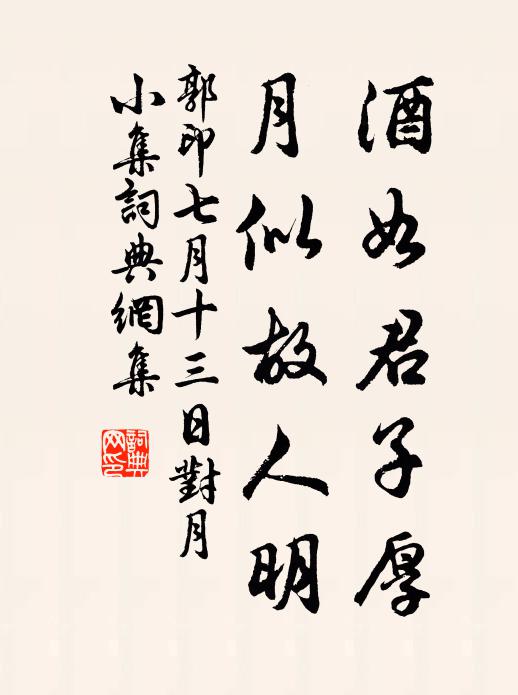 酒如君子厚
月似故人明
郭印七月十三日對月
小集詞典網集
詞典
网印